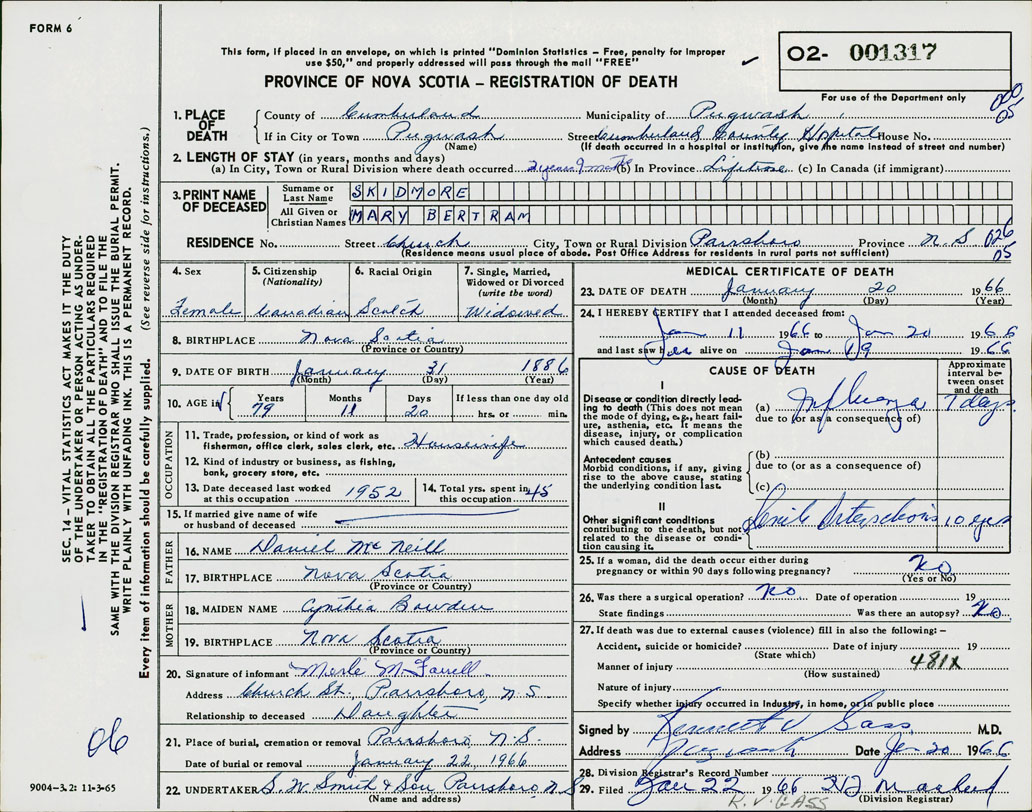 FORM 6
This form, if placed in an envelope, on which is printed "Dominion Statistics – Free, penalty for improper
use $50," and properly addressed will pass through the mail "FREE"
PROVINCE OF NOVA SCOTIA – REGISTRATION OF DEATH
O2- 001317
For use of the Department only
1. PLACE OF DEATH County of Cumberland Municipality of Pugwash 05
If in City or Town Pugwash Street Cumberland County Hospital House No.
(Name) (If death occurred in a hospital or institution, give the name instead of street and number)
2. LENGTH OF STAY (in years, months and days)
(a) In City, Town or Rural Division where death occurred 2 years 9 months (b) In Province Lifetime (c) In Canada (if immigrant)
3. PRINT NAME OF DECEASED Surname or Last Name SKIDMORE
All Given or Christian Names MARY BERTRAM
RESIDENCE No. Street Church City, Town or Rural Division Parrsboro Province N.S 026 05
(Residence means usual place of abode. Post Office Address for residents in rural parts not sufficient)
4. Sex
Female
5. Citizenship (Nationality)
Canadian
6. Racial Origin
Scotch
7. Single, Married, Widowed or Divorced (write the word)
Widowed
8. BIRTHPLACE Nova Scotia
(Province or Country)
9. DATE OF BIRTH January 31 1886
(Month) (Day) (Year)
10. AGE in Years Months Days If less than one day old
79 11 20 hrs. or min.
OCCUPATION
11. Trade, profession, or kind of work as
fisherman, office clerk, sales clerk, etc. Housewife
12. Kind of industry or business, as fishing,
bank, grocery store, etc.
13. Date deceased last worked at this occupation 1952 14. Total yrs. spent in this occupation 45
15. If married give name of wife
or husband of deceased
FATHER
16. NAME Daniel McNeill
17. BIRTHPLACE Nova Scotia
(Province or Country)
MOTHER
18. MAIDEN NAME Cynthia Bowden
19. BIRTHPLACE Nova Scotia
(Province or Country)
20. Signature of informant Merle M. Farrell
Address Church St. Parrsboro, N.S.
Relationship to deceased Daughter
21. Place of burial, cremation or removal Parrsboro N.S.
Date of burial or removal January 22, 1966
22. UNDERTAKER S. W. Smith & Son Parrsboro, N.S
(Name and address)
MEDICAL CERTIFICATE OF DEATH
23. DATE OF DEATH January 20 1966
(Month) (Day) (Year)
24. I HEREBY CERTIFY that I attended deceased from:
Jan 11 1966 to Jan 20 1966
and last saw her alive on Jan 19 1966
CAUSE OF DEATH
Approximate interval between onset and death
I
Disease or condition directly leading to death (This does not mean the mode of dying, e.g., heart failure, asthenia, etc. It means the disease, injury, or complication which caused death.)
(a) Influenza 7 days
due to (or as a consequence of)
Antecedent causes
Morbid conditions, if any, giving rise to the above cause, stating the underlying condition last.
(b)
due to (or as a consequence of)
(c)
II
Other significant conditions contributing to the death, but not related to the disease or condition causing it.
Senile 10 yrs
25. If a woman, did the death occur either during
pregnancy or within 90 days following pregnancy? No
(Yes or No)
26. Was there a surgical operation? No Date of operation 19
State findings Was there an autopsy? No
27. If death was due to external causes (violence) fill in also the following: –
Accident, suicide or homicide? Date of injury 19
(State which)
Manner of injury 481X
(How sustained)
Nature of injury
Specify whether injury occurred in Industry, in home, or in public place
Signed by Kenneth V Gass M.D.
Address Pugwash Date Jan 20 1966
28. Division Registrar's Record Number
29. Filed Jan 22 1966
(Division Registrar)
K.V. GASS
SEC. 14 – VITAL STATISTICS ACT MAKES IT THE DUTY
OF THE UNDERTAKER OR PERSON ACTING AS UNDER-
TAKER TO OBTAIN ALL THE PARTICULARS REQUIRED
IN THE "REGISTRATION OF DEATH" AND TO FILE THE
SAME WITH THE DIVISION REGISTRAR WHO SHALL ISSUE THE BURIAL PERMIT.
WRITE PLAINLY WITH UNFADING INK. THIS IS A PERMANENT RECORD.
Every item of information should be carefully supplied. (See reverse side for instructions.)
06
9004-3.2: 11-3-65